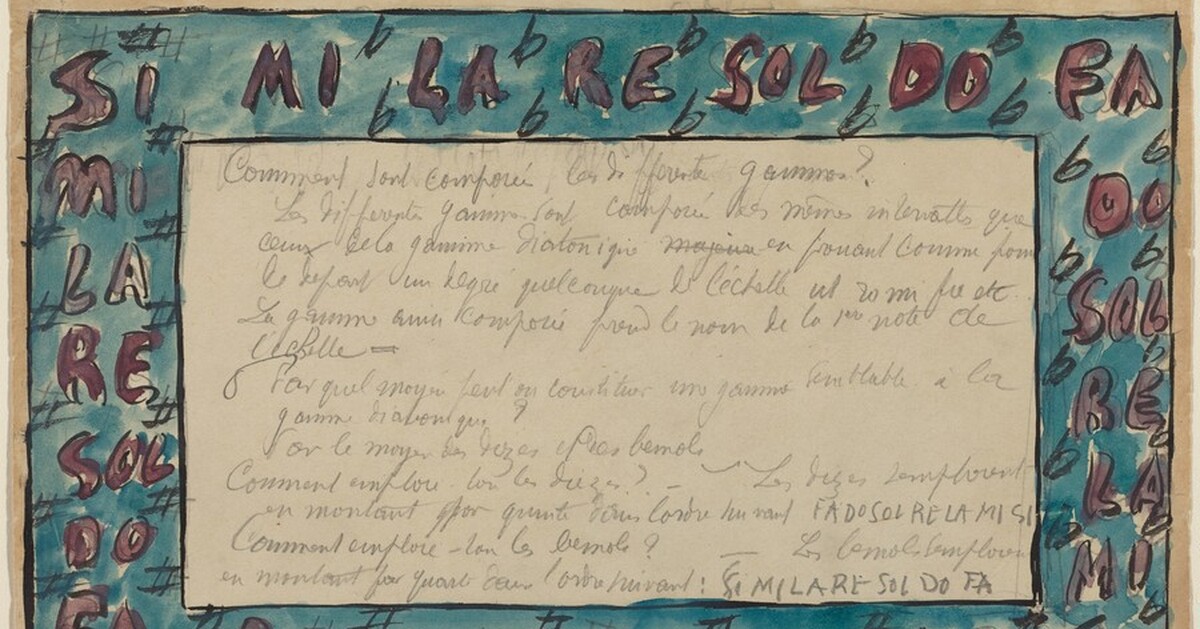 SI MI LA RE SOL DO FA
MI
LA
RE
SOL
DO
FA
DO
SOL
RE
LA
MI
Comment sont composée les differente gammes?
Les differentes gammes sont composée des mêmes intervalls que
ceux de la gamme diatonique majeure en prenant comme poin
de depart un degré quelconque de l'échelle ut re mi fa etc
La gamme ainsi composée prend le nom de la 1ere note de
l'échelle =
Par quel moyen peut on constituer une gamme semblable à la
gamme diatonique ?
Par le moyen des dièzes et des bemols
Comment emploie-t-on les diezes ? - Les diezes s'emploient
en montant par quinte dans l'ordre suivant FA DO SOL RE LA MI SI
Comment emploie-t-on les bemols ? — Les bemols s'emploien
en montant par quarte dans l'ordre suivant : SI MI LA RE SOL DO FA